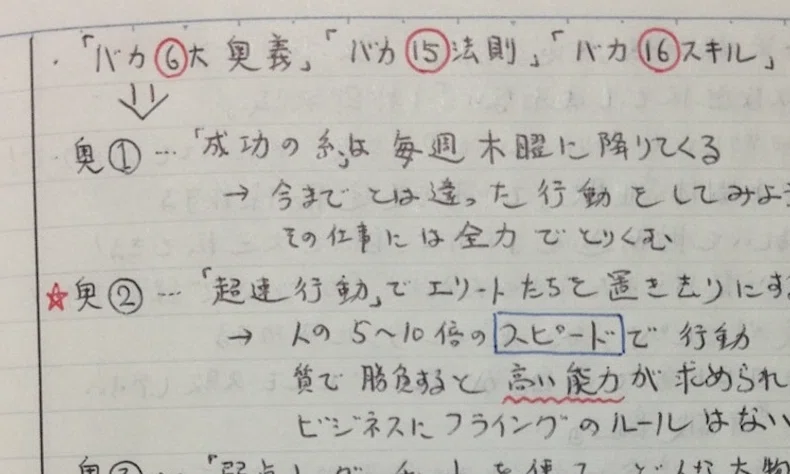 ・「バカ⑥大奥義」「バカ⑮法則」「バカ⑯スキル」
奥①…「成功の糸」は毎週木曜に降りてくる
→今までとは違った行動をしてみよう
その仕事には全力でとりくむ
☆奥②…「超速行動」でエリートたちを置き去りにす
→人の5〜10倍のスピードで行動
質で勝負すると高い能力が求められ
ビジネスにフライングのルールはない
奥③…「弱点レーダーチャートを使って